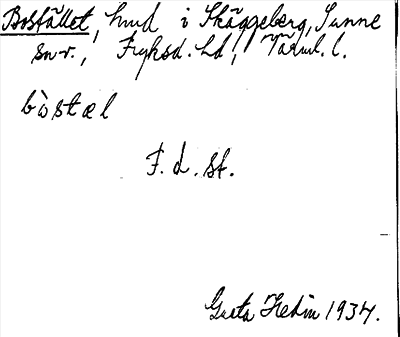 Bostället, hmd i Skäggeberg, Sunne
sn., Fryksd. hd, Värml. l.
bòstæl
F. d. st.
Greta Hedin 1934.